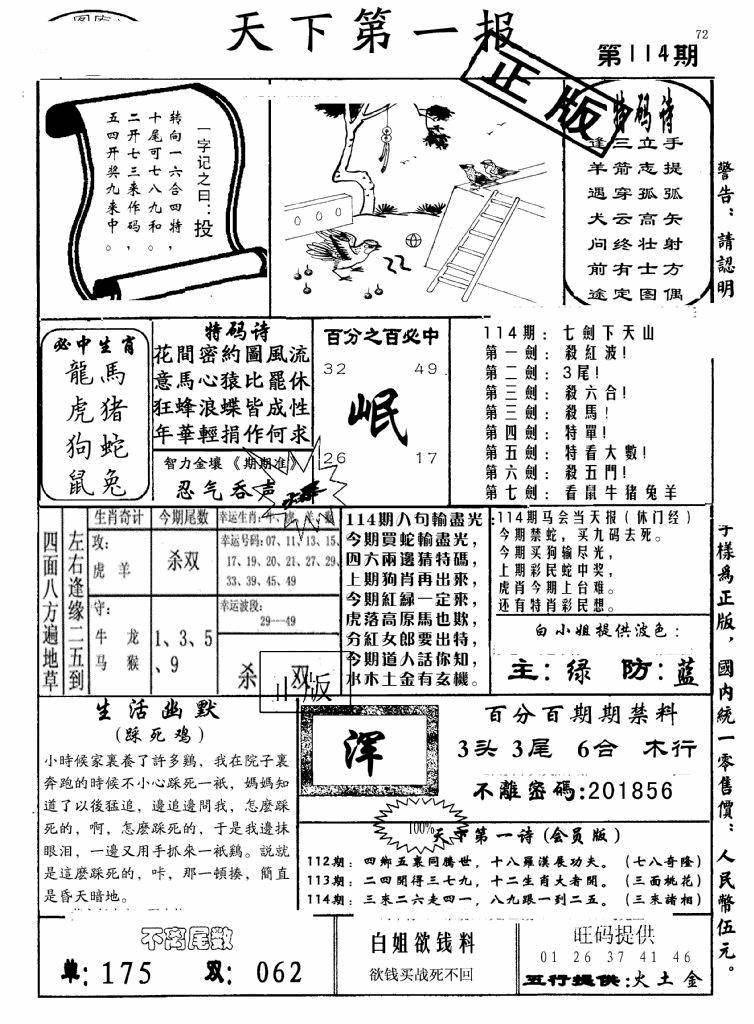 72
天下第一报
第114期
正版
一字记之曰：投
转向一六合四特，
十尾可七八九和。
二开七三来作码，
五四开奖九来中。
特码诗
逢三立手
羊箭志提
遇穿孤弧
犬云高矢
问终壮射
前有士方
途定图偶
警告：請認明
字樣爲正版，國內統一零售價：人民幣伍元。
必中生肖
龍馬
虎猪
狗蛇
鼠兔
特码诗
花間密約圖風流
意馬心猿比罷休
狂蜂浪蝶皆成性
年華輕捐作何求
智力金壤《期期准》
忍气吞声
百分之百必中
32 49
岷
26 17
114期：七劍下天山
第一劍：殺紅波!
第二劍：3尾!
第三劍：殺六合!
第三劍：殺馬!
第四劍：特單!
第五劍：特看大數!
第六劍：殺五門!
第七劍：看鼠牛猪兔羊
四面八方遍地草
左右逢缘二五到
生肖奇计
攻：
虎 羊
守：
牛 龙
马 猴
今期尾数
杀双
1、3、5
、9
幸运生肖：牛、
幸运号码：07、11、13、15、
17、19、20、21、27、29、
33、39、45、49
幸运波段：
29—49
杀 双
正版
114期八句輸盡光
今期買蛇輸盡光，
四六兩邊猜特碼，
上期狗肖再出來，
今期紅緑一定來，
虎落高原馬也欺，
分紅女郎要出特，
今期道人話你知，
水木土金有玄機。
114期马会当天报（休门经）
今期禁蛇，买九码去死。
今期买狗输尽光，
上期彩民蛇中奖，
虎肖今期上台难。
还有特肖彩民想。
白小姐提供波色：
主：绿 防：蓝
生活幽默
（踩死鸡）
小時候家裏養了許多鷄，我在院子裏
奔跑的時候不小心踩死一衹，媽媽知
道了以後猛追，邊追邊問我，怎麽踩
死的，啊，怎麽踩死的，于是我邊抹
眼泪，一邊又用手抓來一衹鷄。説就
是這麽踩死的，咔，那一頓揍，簡直
是昏天暗地。
浑
百分百期期禁料
3头 3尾 6合 木行
不離密碼:201856
100%
天下第一诗（会员版）
112期：四鄉五裏同騰世，十八羅漢展功夫。（七八奇隆）
113期：二四開得三七九，十二生肖大者開。（三面桃花）
114期：三來二六走四一，八九跟一到二五。（三來諸相）
不离尾数
单：175 双：062
白姐欲钱料
欲钱买战死不回
旺码提供
01 26 37 41 46
五行提供：火土金